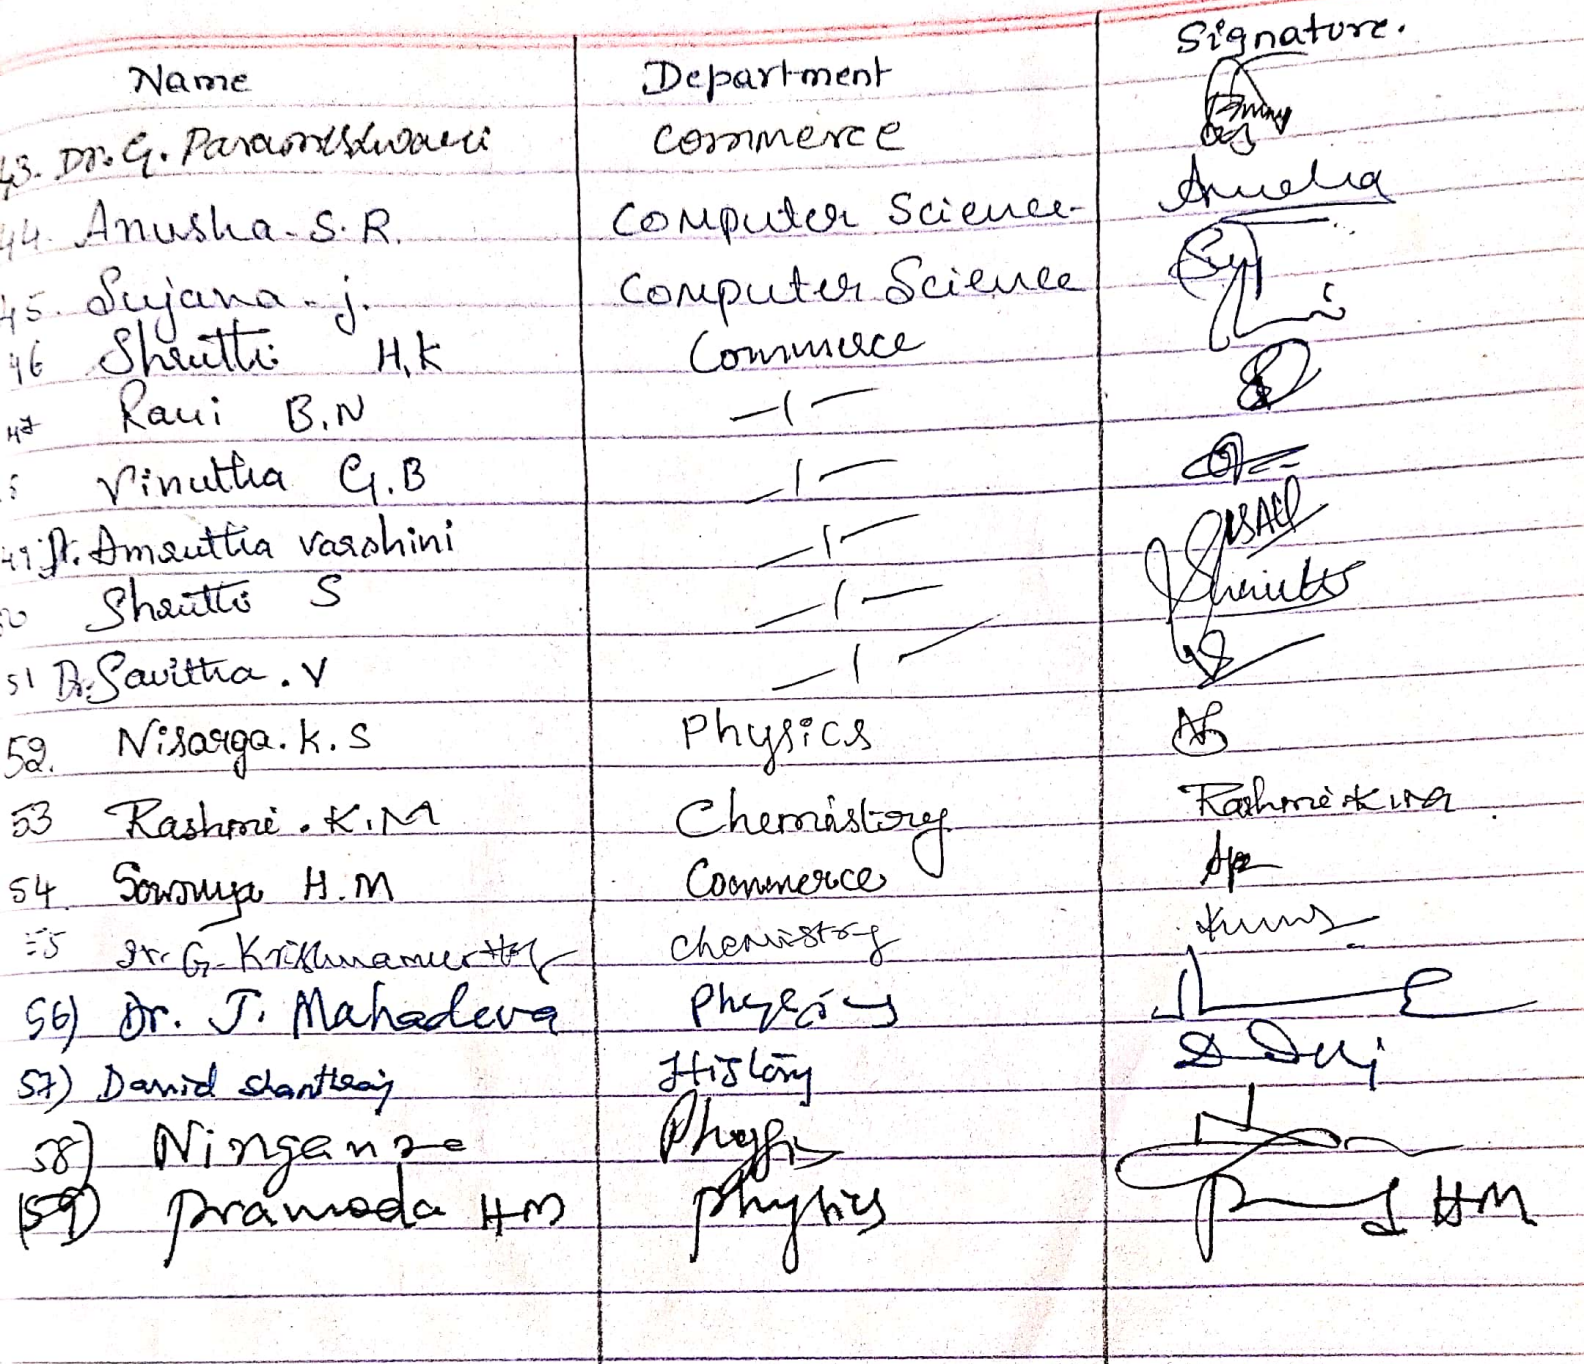 Name Department Signature.
43. Dr. G. Parameshwari Commerce
44. Anusha. S. R. Computer Science Anusha
45. Sujana. j. Computer Science
46 Shruthi H.K Commerce
47 Ravi B.N —1—
Vinutha G.B —1—
49 Dr. Amrutha varshini —1—
50 Shruthi S —1— Shruthi
51 Dr. Savitha. V —1—
52. Nisarga. K. S Physics
53 Rashmi. K.M Chemistory Rashmi K.M
54. Sowmya H.M Commerce
55 Dr. G. Krishnamurthy chemistry
56) Dr. J. Mahadeva Physics
57) David Shanthraj History
58) Physics
59) Pramoda HM Physics HM